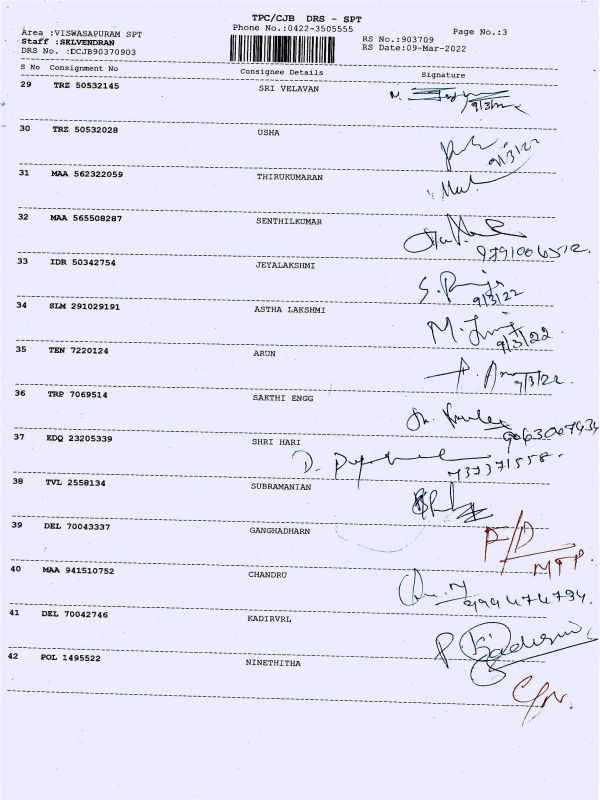 TPC/CJB DRS - SPT
Area :VISWASAPURAM SPT Phone No.:0422-3505555 Page No.:3
Staff :SELVENDRAN RS No.:903709
DRS No. :DCJB90370903 RS Date:09-Mar-2022
S No Consignment No Consignee Details Signature
29 TRZ 50532145 SRI VELAVAN
9/3/22
30 TRZ 50532028 USHA
9/3/22
31 MAA 562322059 THIRUKUMARAN
32 MAA 565508287 SENTHILKUMAR
9791006512
33 IDR 50342754 JEYALAKSHMI
9/3/22
34 SLM 291029191 ASTHA LAKSHMI
9/3/22
35 TEN 7220124 ARUN
9/3/22
36 TRP 7069514 SAKTHI ENGG
9063007434
37 EDQ 23205339 SHRI HARI
38 TVL 2558134 SUBRAMANIAN
39 DEL 70043337 GANGHADHARN
40 MAA 941510752 CHANDRU
41 DEL 70042746 KADIRVRL
42 POL 1495522 NINETHITHA